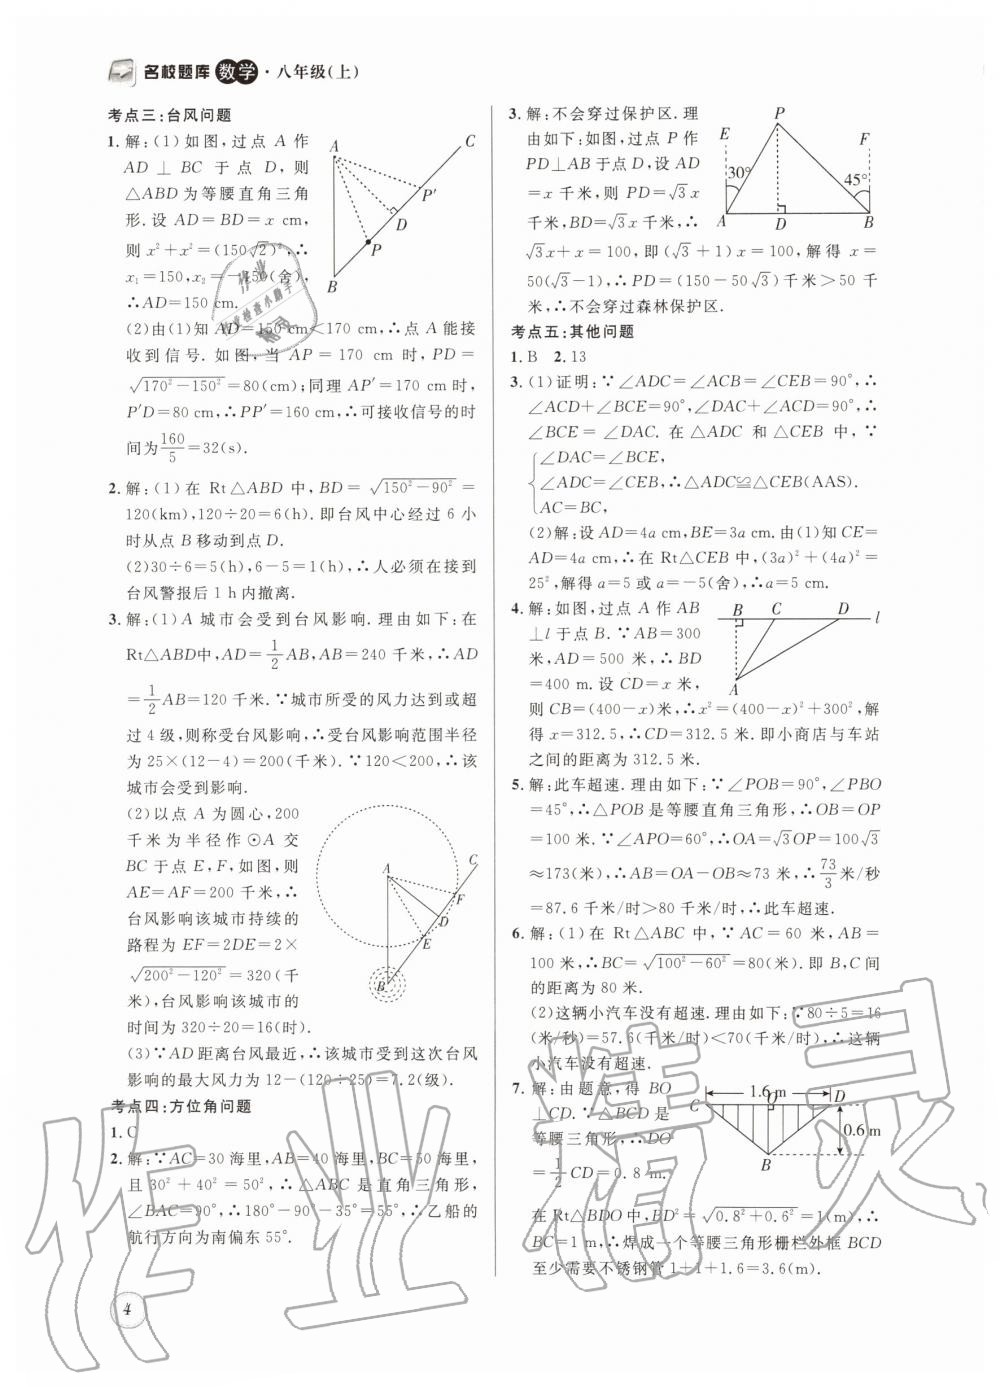 名校题库 数学·八年级(上)
考点三:台风问题
1.解:(1)如图,过点 A 作
AD⊥BC 于点 D,则
△ABD为等腰直角三角
形.设 AD=BD=x cm,
则 x²+x²=(150√2)²,∴
x₁=150,x₂=-150(舍),
∴AD=150 cm.
(2)由(1)知 AD=150 cm<170 cm,∴点 A 能接
收到信号.如图,当 AP=170 cm 时,PD=
√(170²-150²)=80(cm);同理 AP′=170 cm 时,
P′D=80 cm,∴PP′=160 cm,∴可接收信号的时
间为160/5=32(s).
A
C
P′
D
P
B
2.解:(1)在 Rt△ABD 中,BD=√(150²-90²)=
120(km),120÷20=6(h).即台风中心经过 6 小
时从点 B 移动到点 D.
(2)30÷6=5(h),6-5=1(h),∴人必须在接到
台风警报后 1 h内撤离.
3.解:(1)A 城市会受到台风影响.理由如下:在
Rt△ABD中,AD=1/2AB,AB=240 千米,∴AD
=1/2AB=120 千米.∵城市所受的风力达到或超
过 4 级,则称受台风影响,∴受台风影响范围半径
为 25×(12-4)=200(千米).∵120<200,∴该
城市会受到影响.
(2)以点 A 为圆心,200
千米为半径作⊙A 交
BC 于点 E,F,如图,则
AE=AF=200 千米,∴
台风影响该城市持续的
路程为 EF=2DE=2×
√(200²-120²)=320(千
米),台风影响该城市的
时间为 320÷20=16(时).
A
C
F
D
E
B
(3)∵AD 距离台风最近,∴该城市受到这次台风
影响的最大风力为 12-(120÷25)=7.2(级).
考点四:方位角问题
1.C
2.解:∵AC=30 海里,AB=40 海里,BC=50 海里,
且 30²+40²=50²,∴△ABC 是直角三角形,
∠BAC=90°,∴180°-90°-35°=55°,∴乙船的
航行方向为南偏东 55°.
3.解:不会穿过保护区.理
由如下:如图,过点 P 作
PD⊥AB 于点 D,设 AD
=x 千米,则 PD=√3x
千米,BD=√3x 千米,∴
√3x+x=100,即(√3+1)x=100,解得 x=
50(√3-1),∴PD=(150-50√3)千米>50 千
米,∴不会穿过森林保护区.
P
E
F
30°
45°
A
D
B
考点五:其他问题
1.B 2.13
3.(1)证明:∵∠ADC=∠ACB=∠CEB=90°,∴
∠ACD+∠BCE=90°,∠DAC+∠ACD=90°,
∴∠BCE=∠DAC.在△ADC 和△CEB 中,∵
∠DAC=∠BCE,
∠ADC=∠CEB,∴△ADC≌△CEB(AAS).
AC=BC,
(2)解:设 AD=4a cm,BE=3a cm.由(1)知 CE=
AD=4a cm,∴在 Rt△CEB 中,(3a)²+(4a)²=
25²,解得 a=5 或 a=-5(舍),∴a=5 cm.
4.解:如图,过点 A 作 AB
⊥l 于点 B.∵AB=300
米,AD=500 米,∴BD
=400 m.设 CD=x 米,
则 CB=(400-x)米,∴x²=(400-x)²+300²,解
得 x=312.5,∴CD=312.5 米.即小商店与车站
之间的距离为 312.5 米.
B
C
D
l
A
5.解:此车超速.理由如下:∵∠POB=90°,∠PBO
=45°,∴△POB 是等腰直角三角形,∴OB=OP
=100 米.∵∠APO=60°,∴OA=√3OP=100√3
≈173(米),∴AB=OA-OB≈73 米,∴73/3米/秒
=87.6 千米/时>80 千米/时,∴此车超速.
6.解:(1)在 Rt△ABC 中,∵AC=60 米,AB=
100 米,∴BC=√(100²-60²)=80(米).即 B,C 间
的距离为 80 米.
(2)这辆小汽车没有超速.理由如下:∵80÷5=16
(米/秒)=57.6(千米/时)<70(千米/时),∴这辆
小汽车没有超速.
7.解:由题意,得 BO
⊥CD.∵△BCD 是
等腰三角形,∴DO
=1/2CD=0.8 m.
在 Rt△BDO 中,BD²=√(0.8²+0.6²)=1(m),∴
BC=1 m,∴焊成一个等腰三角形栅栏外框 BCD
至少需要不锈钢管 1+1+1.6=3.6(m).
1.6 m
C
O
D
0.6 m
B
4
作业精灵
作业
作业检查小助手